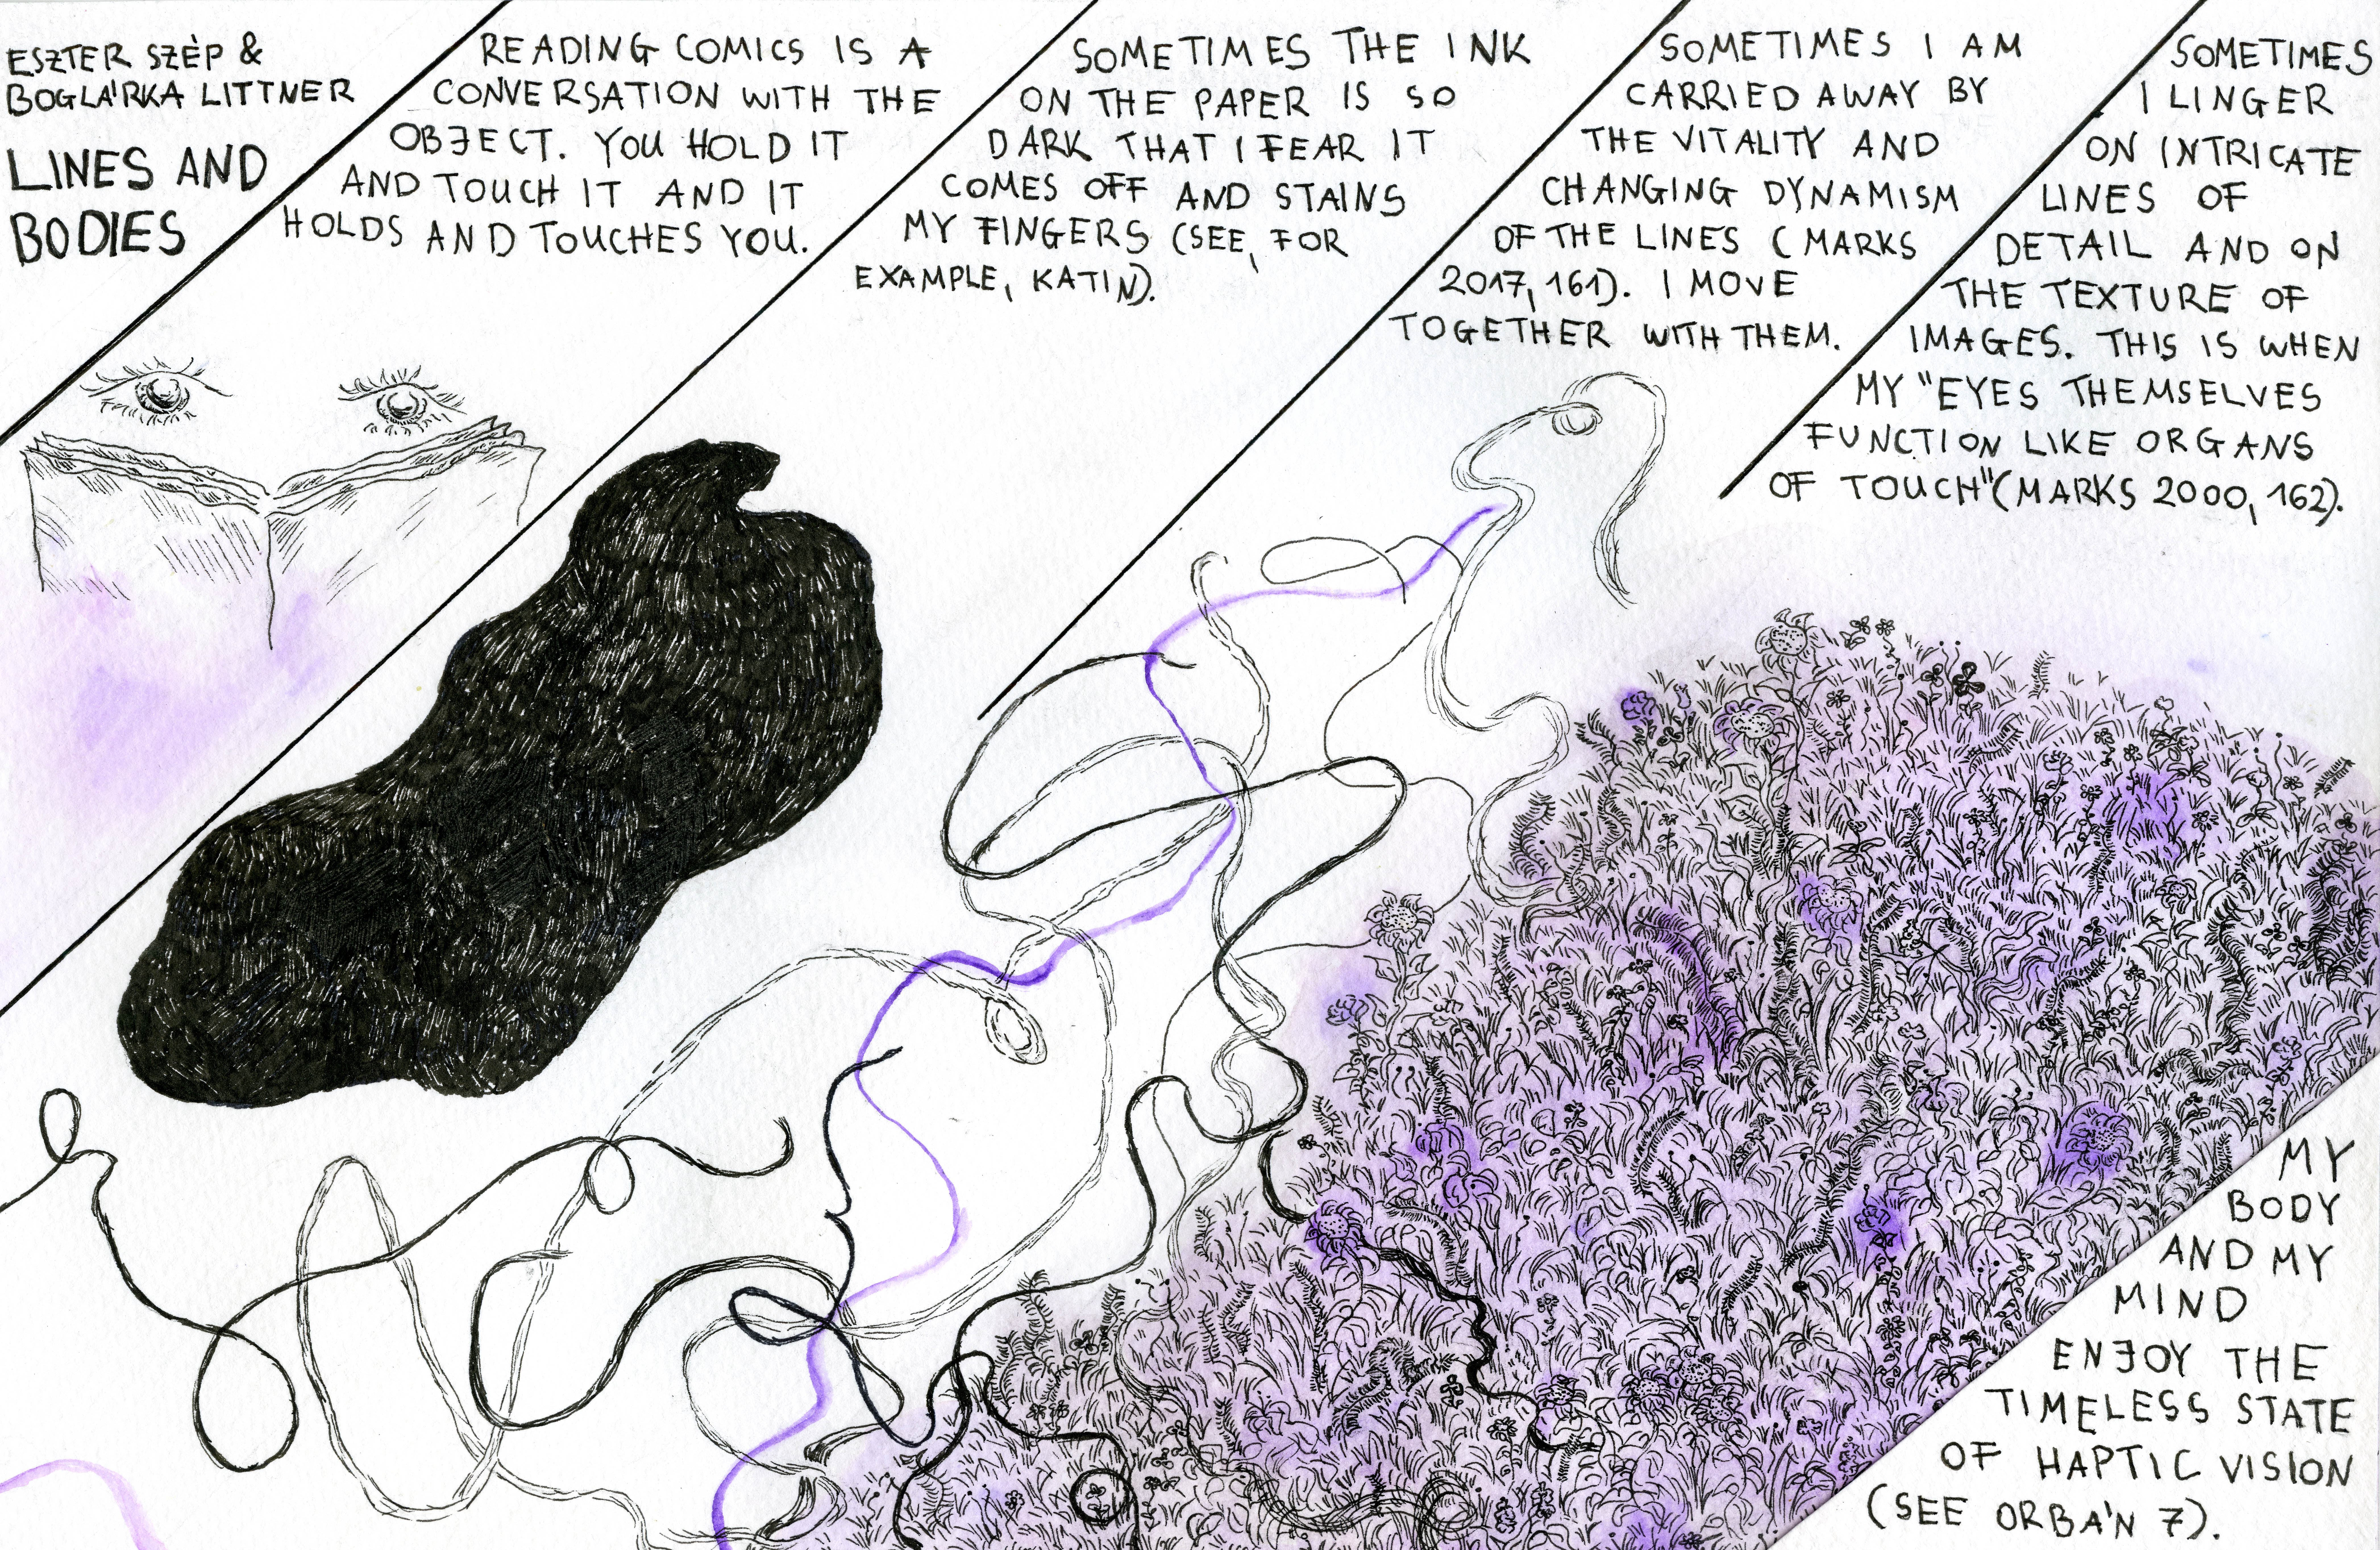 ESZTER SZÈP &
BOGLÁRKA LITTNER
LINES AND
BODIES
READING COMICS IS A
CONVERSATION WITH THE
OBJECT. YOU HOLD IT
AND TOUCH IT AND IT
HOLDS AND TOUCHES YOU.
SOMETIMES THE INK
ON THE PAPER IS SO
DARK THAT I FEAR IT
COMES OFF AND STAINS
MY FINGERS (SEE, FOR
EXAMPLE, KATIN).
SOMETIMES I AM
CARRIED AWAY BY
THE VITALITY AND
CHANGING DYNAMISM
OF THE LINES (MARKS
2017, 161). I MOVE
TOGETHER WITH THEM.
SOMETIMES
I LINGER
ON INTRICATE
LINES OF
DETAIL AND ON
THE TEXTURE OF
IMAGES. THIS IS WHEN
MY "EYES THEMSELVES
FUNCTION LIKE ORGANS
OF TOUCH" (MARKS 2000, 162).
MY
BODY
AND MY
MIND
ENJOY THE
TIMELESS STATE
OF HAPTIC VISION
(SEE ORBÁN 7).